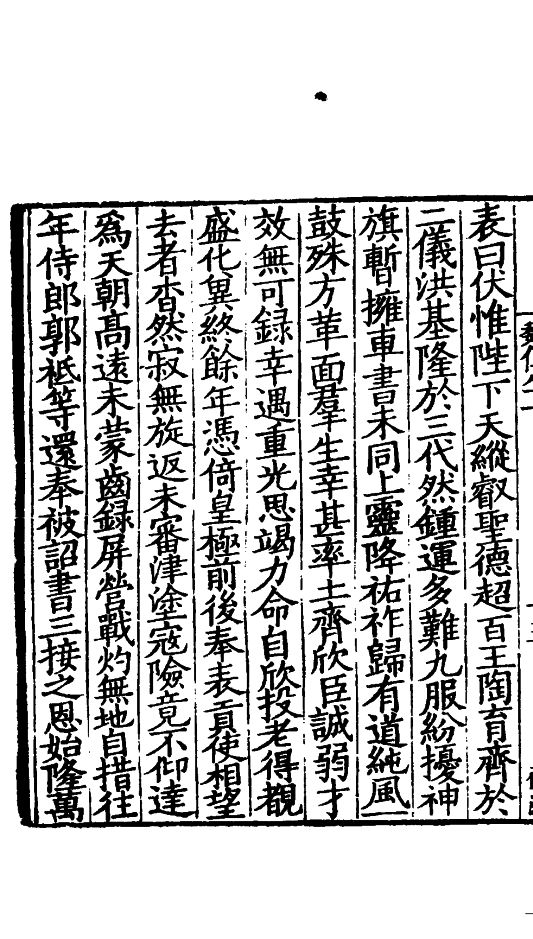 表曰伏惟陛下天縱叡聖德超百王陶育齊於
二儀洪基隆於三代然鍾運多難九服紛擾神
旗暫擁車書未同上靈降祐祚歸有道純風一
鼓殊方革面羣生幸甚率土齊欣臣誠弱才
效無可録幸遇重光思竭力命自欣投老得覩
盛化異終餘年憑倚皇極前後奉表貢使相望
去者杳然寂無旋返未審津塗寇險竟不仰達
爲天朝髙遠未蒙齒録屏營戰灼無地自措往
年侍郎郭祗等還奉被詔書三接之恩始隆萬